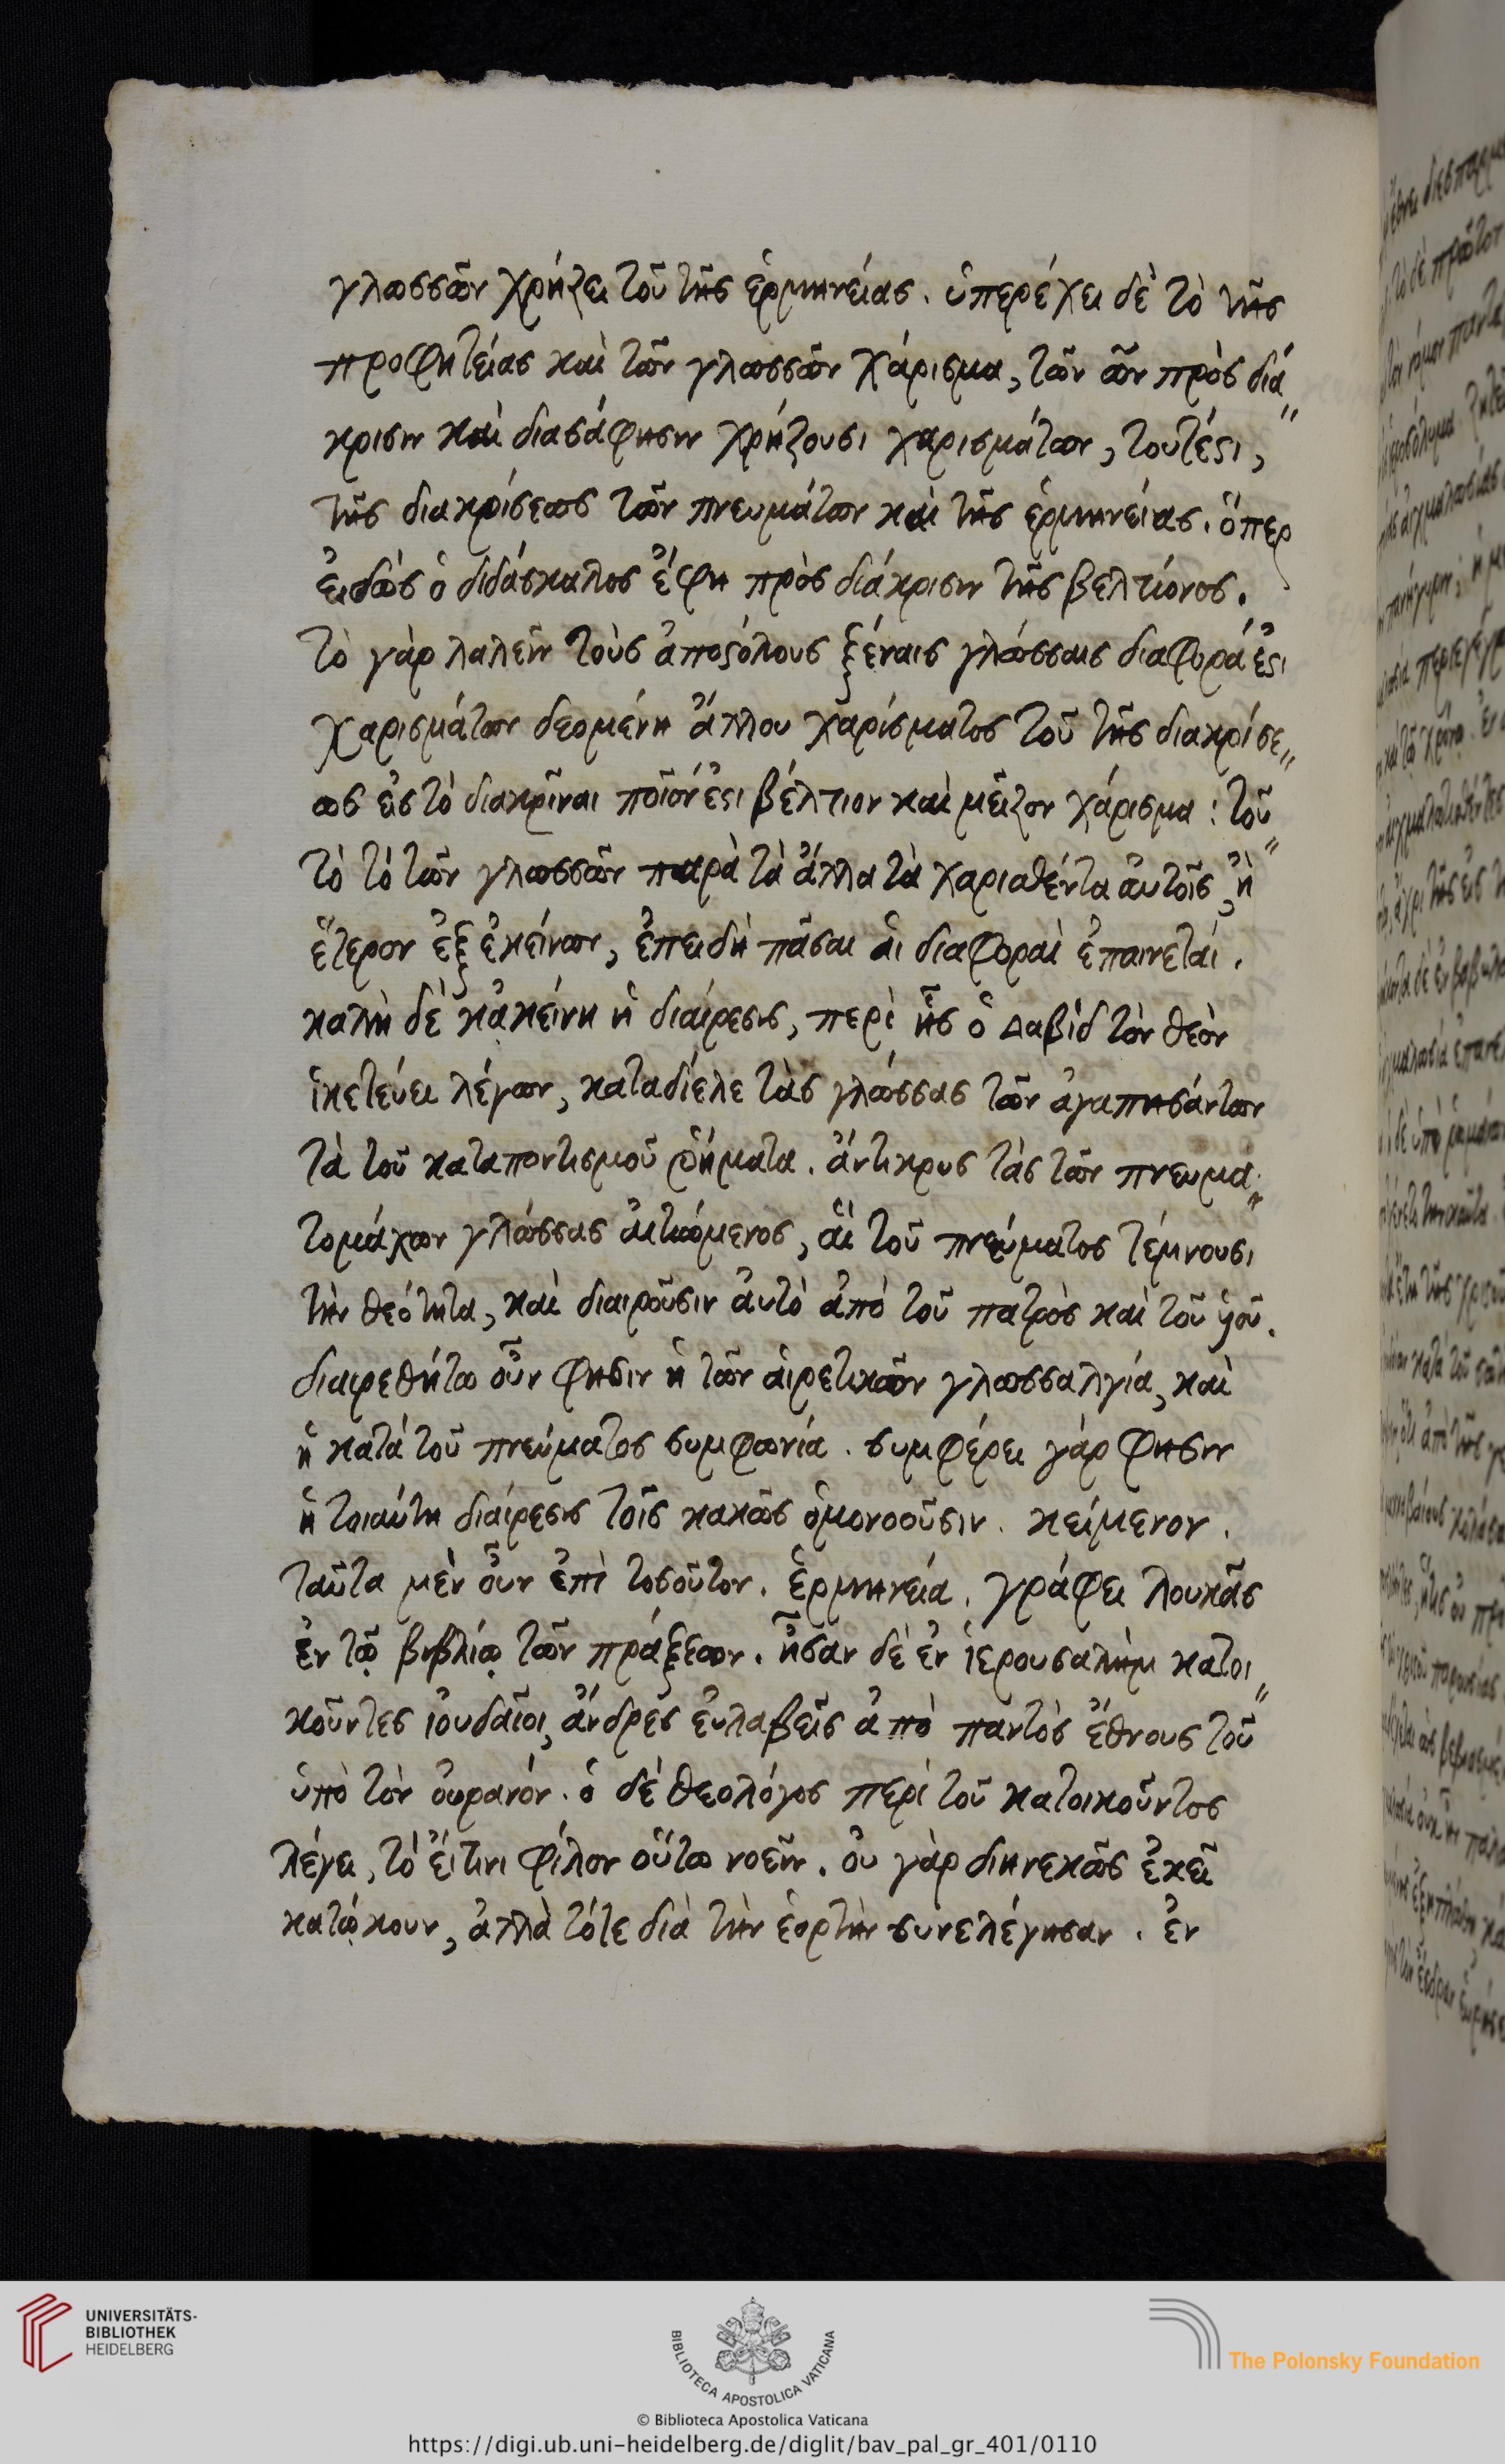 γλωσσῶν χρήζει τοῦ τῆς ἑρμηνείας. ὑπερέχει δὲ τὸ τῆς
προφητείας καὶ τῶν γλωσσῶν χάρισμα, τῶν ὧν πρὸς διά
κρισιν καὶ διασάφησιν χρήζουσι χαρισμάτων, τουτέστι,
τῆς διακρίσεως τῶν πνευμάτων καὶ τῆς ἑρμηνείας. ὅπερ
εἰδὼς ὁ διδάσκαλος ἔφη πρὸς διάκρισιν τῆς βελτίονος.
τὸ γὰρ λαλεῖν τοὺς ἀποστόλους ξέναις γλώσσαις διαφορά ἐστι
χαρισμάτων δεομένη ἄλλου χαρίσματος τοῦ τῆς διακρίσε
ως εἰς τὸ διακρῖναι ποῖόν ἐστι βέλτιον καὶ μεῖζον χάρισμα: τοῦ
το τὸ τῶν γλωσσῶν παρὰ τὰ ἄλλα τὰ χαρισθέντα αὐτοῖς, ἢ
ἕτερον ἐξ ἐκείνων, ἐπειδὴ πᾶσαι αἱ διαφοραὶ ἐπαινεταί.
καλὴ δὲ κἀκείνη ἡ διαίρεσις, περὶ ἧς ὁ Δαβὶδ τὸν θεὸν
ἱκετεύει λέγων, καταδίελε τὰς γλώσσας τῶν ἀγαπησάντων
τὰ τοῦ καταποντισμοῦ ῥήματα. ἄντικρυς τὰς τῶν πνευμα
τομάχων γλώσσας αἰτιώμενος, αἳ τοῦ πνεύματος τέμνουσι
τὴν θεότητα, καὶ διαιροῦσιν αὐτὸ ἀπὸ τοῦ πατρὸς καὶ τοῦ υἱοῦ.
διαιρεθήτω οὖν φησιν ἡ τῶν αἱρετικῶν γλωσσαλγία, καὶ
ἡ κατὰ τοῦ πνεύματος συμφωνία. συμφέρει γάρ φησιν
ἡ τοιαύτη διαίρεσις τοῖς κακῶς ὁμονοοῦσιν. κείμενον.
ταῦτα μὲν οὖν ἐπὶ τοσοῦτον. ἑρμηνεία. γράφει λουκᾶς
ἐν τῷ βιβλίῳ τῶν πράξεων. ἦσαν δὲ ἐν ἱερουσαλὴμ κατοι
κοῦντες ἰουδαῖοι, ἄνδρες εὐλαβεῖς ἀπὸ παντὸς ἔθνους τοῦ
ὑπὸ τὸν οὐρανόν. ὁ δὲ θεολόγος περὶ τοῦ κατοικοῦντος
λέγει, τὸ εἴ τινι φίλον οὕτω νοεῖν. οὐ γὰρ διηνεκῶς ἐκεῖ
κατῴκουν, ἀλλὰ τότε διὰ τὴν ἑορτὴν συνελέγησαν. ἐν
UNIVERSITÄTS-
BIBLIOTHEK
HEIDELBERG
BIBLIOTECA APOSTOLICA VATICANA
The Polonsky Foundation
© Biblioteca Apostolica Vaticana
https://digi.ub.uni-heidelberg.de/diglit/bav_pal_gr_401/0110